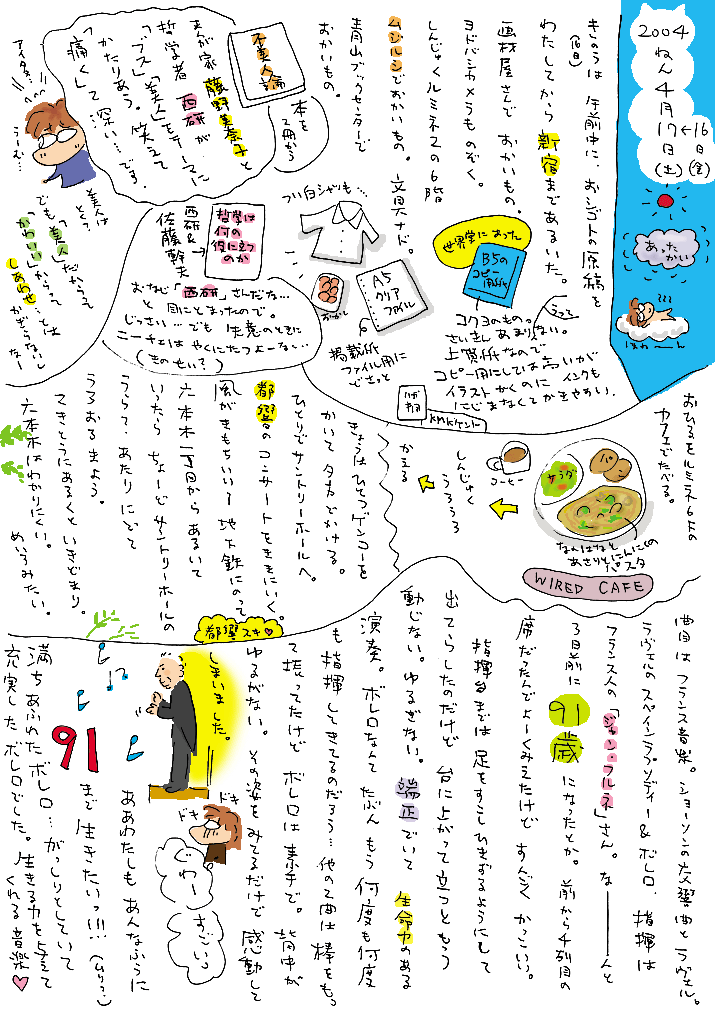 2004
ねん
4
月
17←16
日 日
(土)(金)
あったかい
きのうは 午前中に、おシゴトの原稿を
(16日)
わたしてから 新宿まであるいた。
画材屋さんで おかいもの。
ヨドバシカメラものぞく。
しんじゅくルミネ2の6階
ムジルシでおかいもの。文具ナド。
青山ブックセンターで
おかいもの。
本を
2冊かう
不美人論
まんが家 藤野美奈子と
哲学者 西研が
「ブス」「美」をテーマに
かたりあう。笑えて
「痛く」て 深い…です。
アイタタ…
うーむ…
美人は
とく?
でも「美人」だからって
「かわいい」からって
しあわせとは
かぎらないしなー
哲学は
何の
役に立つ
のか
西研&
佐藤幹夫
おなじ「西研」さんだな…
と 目にとまったので。
じっさい…でも 失意のときに
ニーチェは やくにたつよーな…
(きのせい?)
つい白シャツも…
おかし
A5
クリア
ファイル
掲載紙
ファイル用に
どさっと
世界堂によった
B5の
コピー
用紙
コクヨのもの。
さいきん あまりない。
上質紙なので
コピー用にしては高いが
イラストかくのに インクも
にじまなくてかきやすい。
KMKケント
おひるをルミネ1 6Fの
カフェでたべる。
サラダ
パン
なのはなと
あさりとにんにくの
パスタ
WIRED CAFE
コーヒー
しんじゅく
うろうろ
かえる
きょうは ひとつゲンコーを
かいて 夕方でかける。
ひとりでサントリーホールへ。
都響のコンサートをききにいく。
風がきもちいい 地下鉄にのって
六本木一丁目からあるいて
いったら ちょーどサントリーホールの
うら? あたりにでて
うろおろまよう。
てきとうにあるくといきどまり。
六本木はわかりにくい。
めいろみたい。
都響スキ♡
曲目は フランス音楽。ショーソンの交響曲と ラヴェル。
ラヴェルのスペインラプソディー&ボレロ、指揮は
フランス人の「ジャン・フルネ」さん。な――んと
3日前に 91歳になったとか。前から4列目の
席だったんでよーくみえたけど すんごく かっこいい。
指揮台までは 足をすこしひきずるようにして
出てらしたのだけど 台に上がって立つともう
動じない。ゆるぎない。端正でいて 生命力のある
演奏。ボレロなんて たぶん もう 何度も何度
も 指揮してきてるのだろう…他の2曲は 棒をもっ
て振ってたけど ボレロは 素手で。背中が
ゆるがない。その姿をみてるだけで 感動して
しまいました。
ドキ
ドキ
じわー
すごいっ
ああわたしも あんなふうに
91まで 生きたいっ!!!(ムリ?)
満ちあふれたボレロ…がっしりとしていて
充実したボレロでした。生きる力を与えて
くれる音楽♡